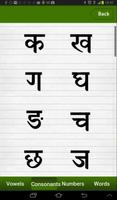 Back
क ख
ग घ
ङ च
छ ज
Vowels Consonants Numbers Words